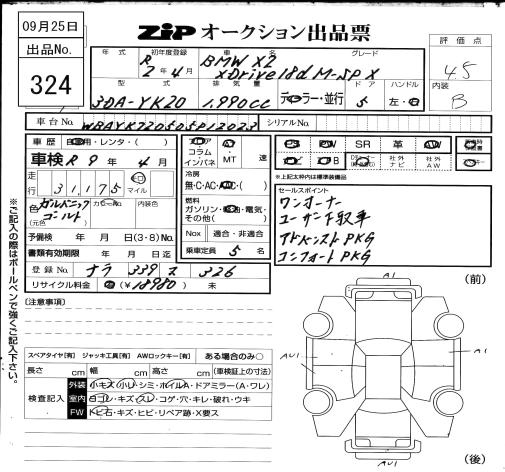 09月25日
ZIP オークション出品票
出品No.
324
年式 初年度登録 車名 グレード
R 2年 4月 BMW X2
xDrive18d M-SP X
型式 排気量 ドア ハンドル
3DA-YK20 1,990cc ディーラー・並行 5 左・右
評価点
4.5
内装
B
車台No. WBAYK7205 シリアルNo.
車歴 自家用・レンタ・( )
車検 R 9年 4月
走行 31,175 キロ マイル
コラム インパネ AT MT 速
冷房
無・C・AC・AAC・( )
燃料
ガソリン・軽油・電気・
その他( )
色 ガルバニック カラーNo.
ゴールド
(元色)
予備検 年 月 日(3・8)No.
書類有効期限 年 月 日迄
Nox 適合・非適合
乗車定員 5 名
登録No. ナラ 339 ヌ 326
リサイクル料金 済(¥18980) 未
SR 革 AW
社外ナビ 社外AW
*上記太枠内は標準装備品
セールスポイント
ワンオーナー
ユーザー下取車
アドバンストPKG
コンフォートPKG
※ご記入の際はボールペンで強くご記入下さい。
(注意事項)
スペアタイヤ[有] ジャッキ工具[有] AWロックキー[有] ある場合のみ○
長さ cm 幅 cm 高さ cm (車検証上の寸法)
検査記入
外装 小キズ・小凹・シミ・ホイルA・ドアミラー(A・ワレ)
室内 ヨゴレ・キズ・スレ・コゲ・穴・キレ・破れ・ウキ
FW トビ石・キズ・ヒビ・リペア跡・X要ス
(前)
A1
AU1
AU1
AU1
(後)